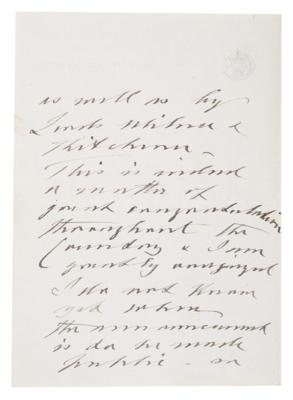 as well as by
Lords Milner &
Kitchener –
This is indeed
a matter of
great congratulation
throughout the
Country & I am
greatly
I do not know
yet when
the announcement
is to be made
public – so